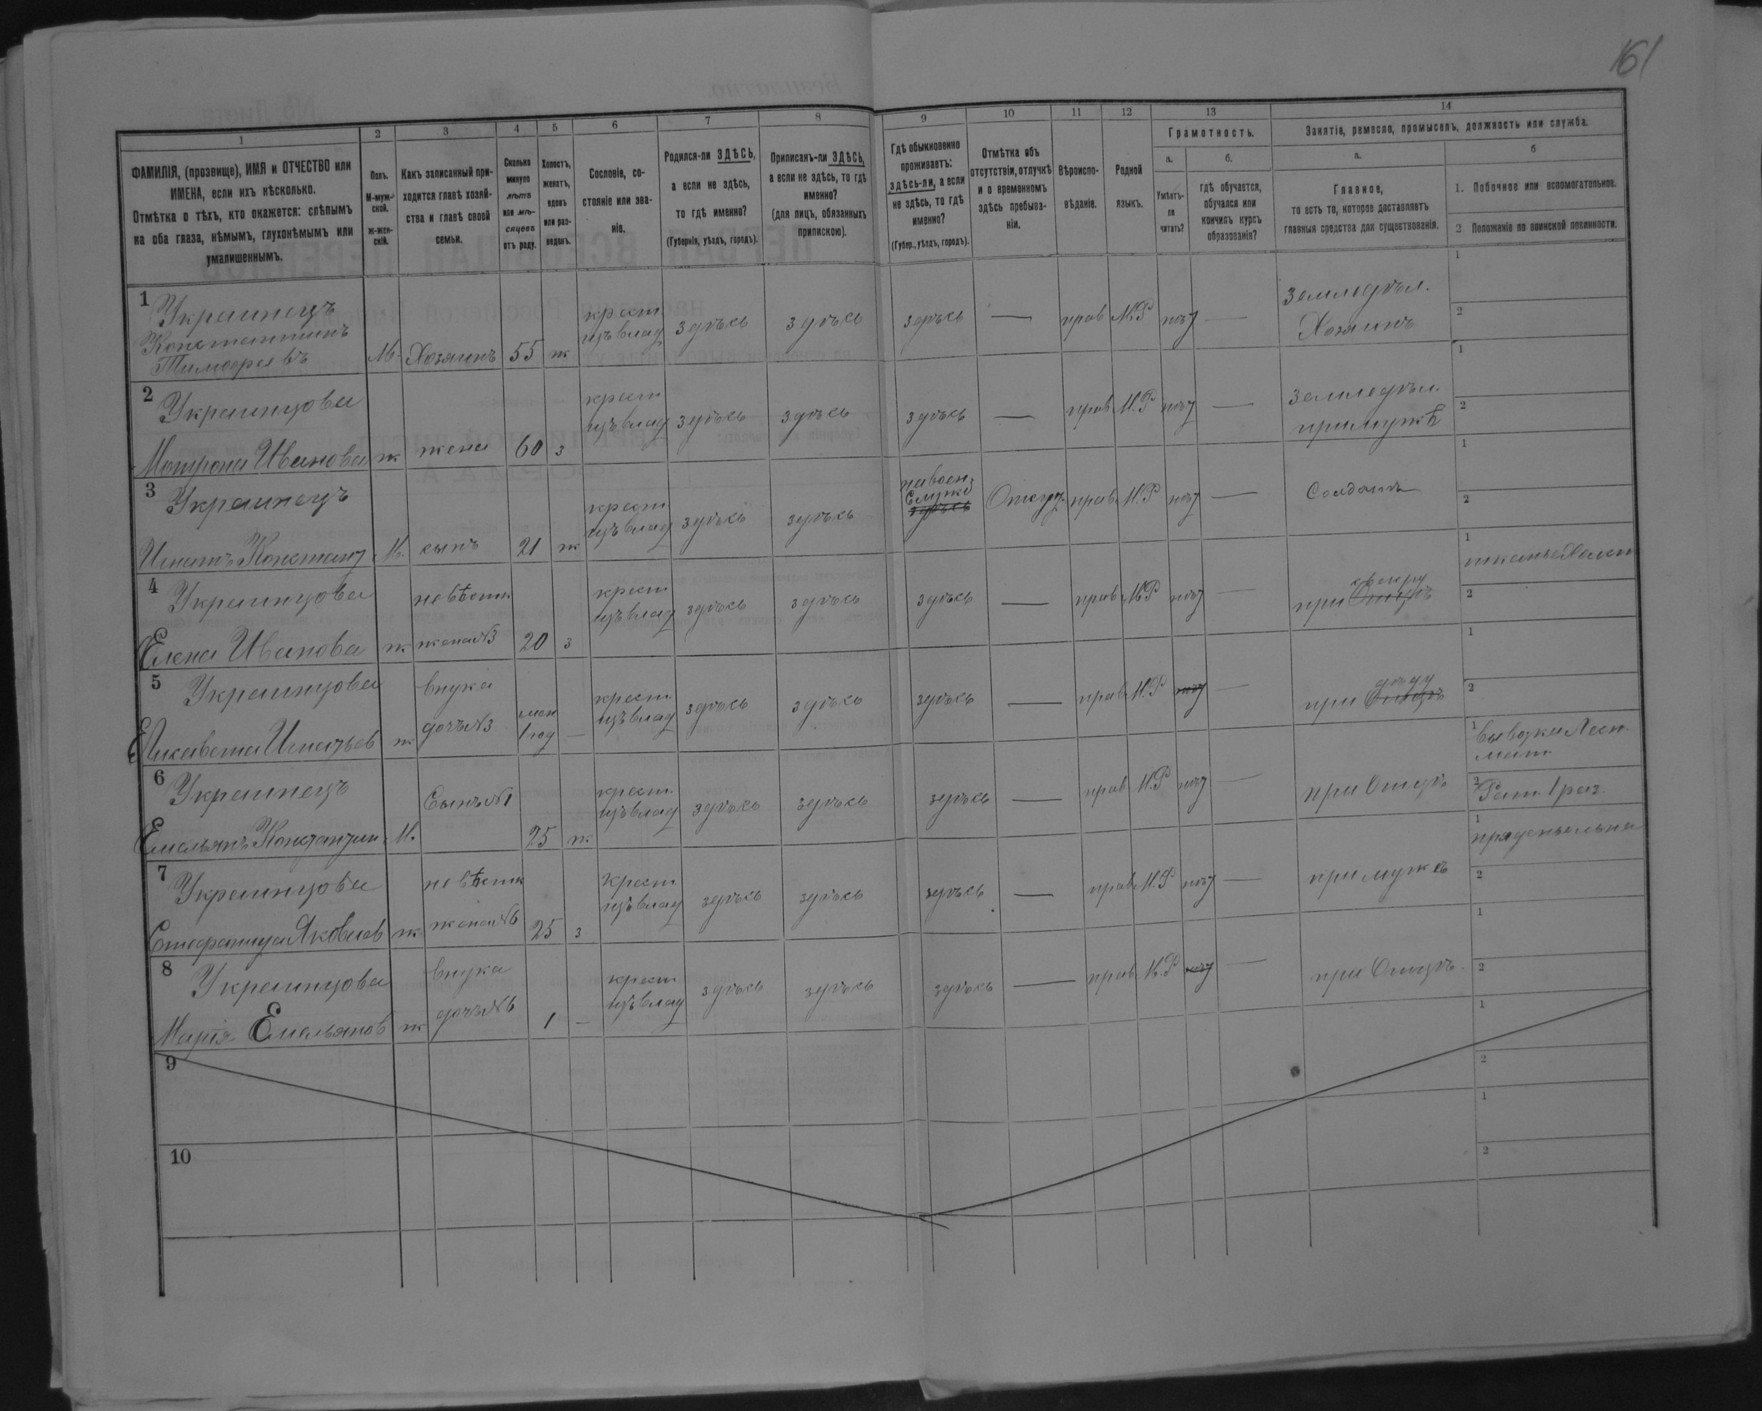 161
1 2 3 4 5 6 7 8 9 10 11 12 13 14
ФАМИЛІЯ, (прозвище), ИМЯ и ОТЧЕСТВО или
ИМЕНА, если ихъ нѣсколько.
Отмѣтка о тѣхъ, кто окажется: слѣпымъ
на оба глаза, нѣмымъ, глухонѣмымъ или
умалишеннымъ.
Полъ.
М-муж-
ской.
ж-жен-
скій.
Какъ записанный при-
ходится главѣ хозяй-
ства и главѣ своей
семьи.
Сколько
минуло
лѣтъ
или мѣ-
сяцевъ
отъ роду.
Холостъ,
женатъ,
вдовъ
или раз-
веденъ.
Сословіе, со-
стояніе или зва-
ніе.
Родился-ли ЗДѢСЬ,
а если не здѣсь,
то гдѣ именно?
(Губернія, уѣздъ, городъ).
Приписанъ-ли ЗДѢСЬ,
а если не здѣсь, то гдѣ
именно?
(для лицъ, обязанныхъ
припискою).
Гдѣ обыкновенно
проживаетъ:
здѣсь-ли, а если
не здѣсь, то гдѣ
именно?
(Губер., уѣздъ, городъ).
Отмѣтка объ
отсутствіи, отлучкѣ
и о временномъ
здѣсь пребыва-
ніи.
Вѣроиспо-
вѣданіе.
Родной
языкъ.
Грамотность.
а.
Умѣетъ-
ли
читать?
б.
гдѣ обучается,
обучался или
кончилъ курсъ
образованія?
Занятіе, ремесло, промыселъ, должность или служба.
а.
Главное,
то есть то, которое доставляетъ
главныя средства для существованія.
б
1. Побочное или вспомогательное.
2 Положеніе по воинской повинности.
1 Украинецъ
Константинъ
Тимофеевъ М. Хозяинъ 55 ж крест изъ влад здѣсь здѣсь здѣсь — прав М.Р нѣт — Земледѣл. Хозяинъ 1 2
2 Украинцова
Матрона Иванова ж жена 60 з крест изъ влад здѣсь здѣсь здѣсь — прав М.Р нѣт — Земледѣл. при мужѣ 1 2
3 Украинецъ
Игнатъ Констант М. сынъ 21 ж крест изъ влад здѣсь здѣсь на воен. Службѣ здѣсь Отсут прав М.Р нѣт — Солдатъ 1 2
4 Украинцова
Елена Иванова ж невѣстк жена №3 20 з крест изъ влад здѣсь здѣсь здѣсь — прав М.Р нѣт — при свекру Отцѣ 1 тканье 2
5 Украинцова
Елисавета Игнатьев ж внука дочь №3 мен 1 год — крест изъ влад здѣсь здѣсь здѣсь — прав М.Р нѣт — при дѣду Отцѣ 1 2
6 Украинецъ
Емельянъ Константин М. Сынъ №1 25 ж. крест изъ влад здѣсь здѣсь здѣсь — прав М.Р нѣт — при Отцѣ 1 вывозка Лесн. мат. 2 Рат. 1 раз.
7 Украинцова
Стефанида Яковлев ж невѣстк жена №6 25 з крест изъ влад здѣсь здѣсь здѣсь — прав М.Р нѣт — при мужѣ 1 пряденье льна 2
8 Украинцова
Марія Емельянов ж внука дочь №6 1 — крест изъ влад здѣсь здѣсь здѣсь — прав М.Р нѣт — при Отцѣ. 1 2
9 1 2
10 1 2